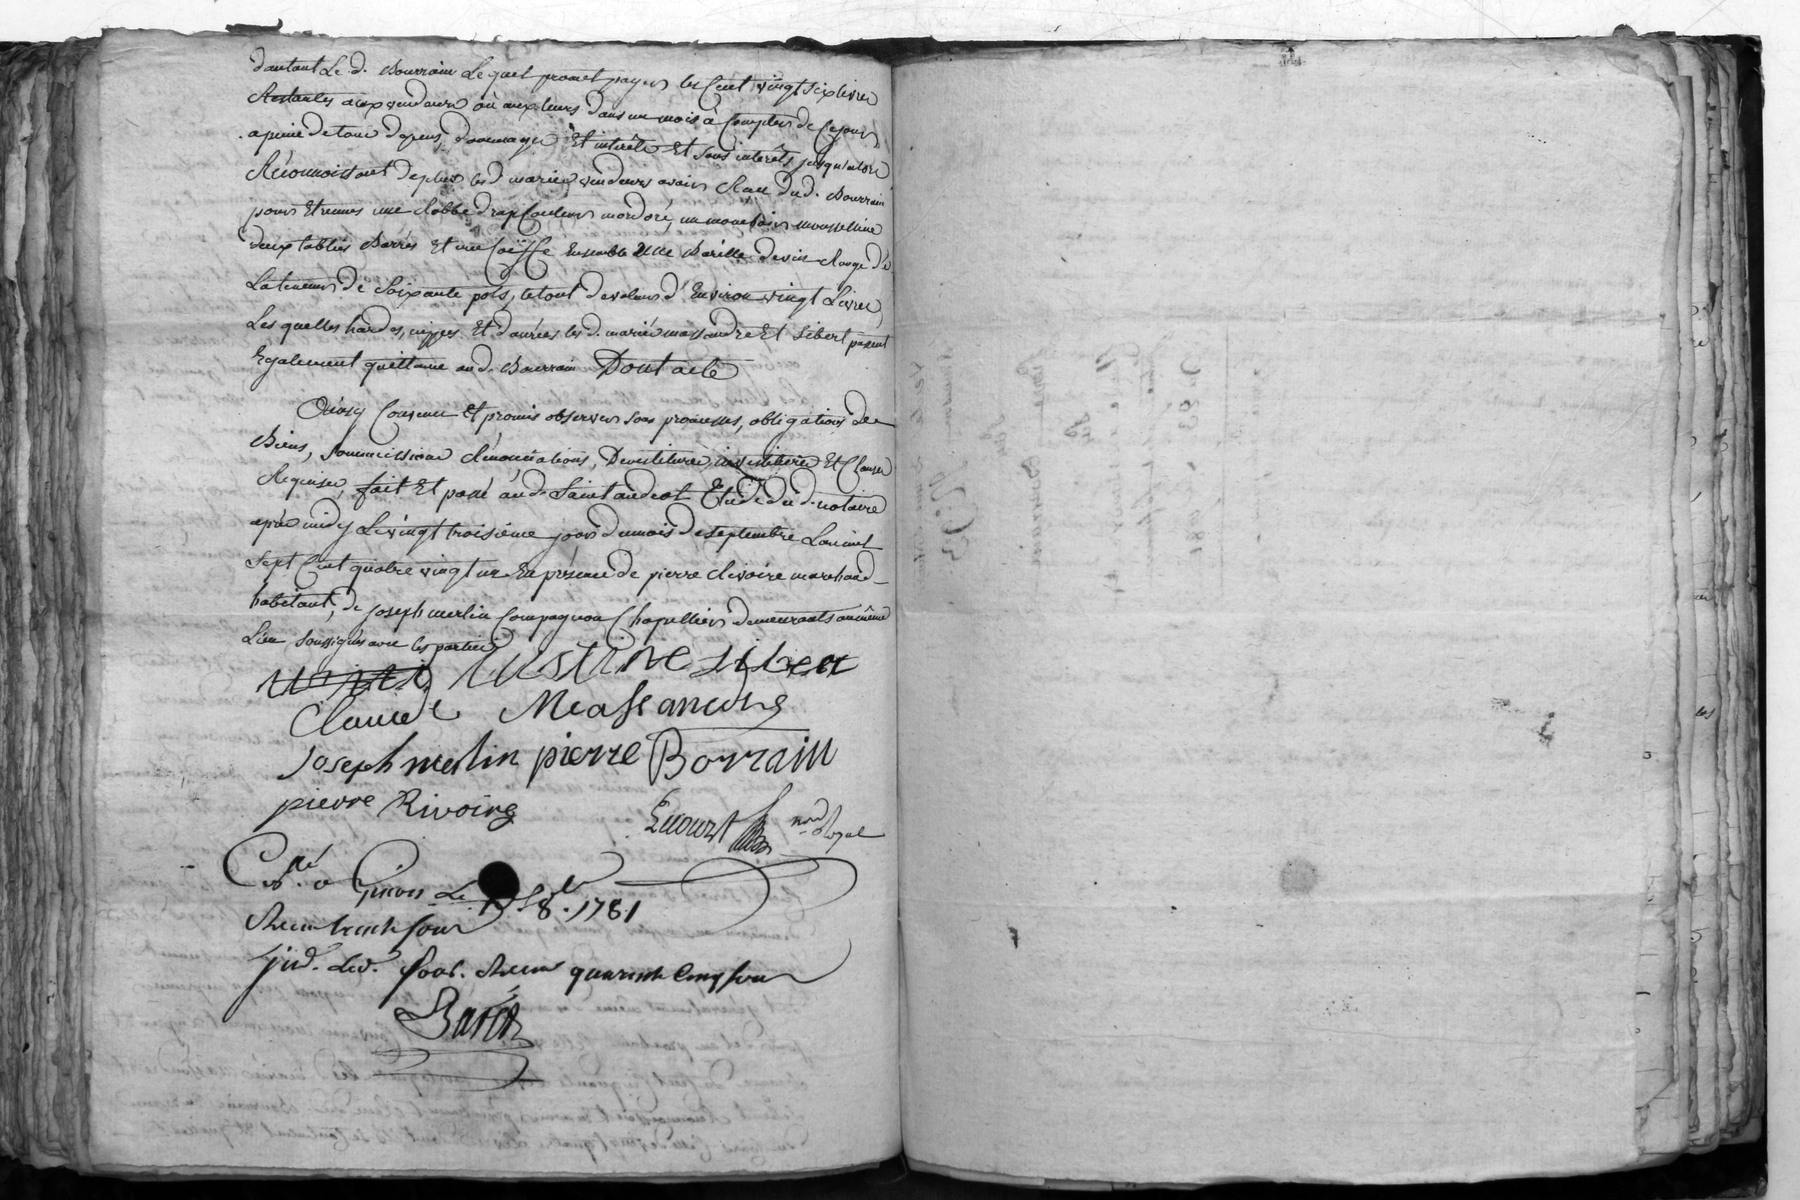 d'autant Le d. Bourrain Lequel promet payer les Cent vingt six livres
Restantes auxvendeurs ou aux leurs dans un mois à Compter de Cejour
apeine detous depens, dommages Et interêts Et sans interêts jusqu'alors
Réconnoissant deplus les d mariés vendeurs avoir Reçu dud. Bourrain
pour Etrennes une Robbe drap Couleur mordoré, un mouchoir mousseline
deux tabliés Barrés Et une Coëffe Ensemble une Barille devin Rouge de
La teneur de Soixante pots, letout devaleur d'Environ vingt Livres
Les quelles hardes, nippes Et danrées les d. mariés massandre Et Libert passent
Egalement quittance aud. Bourrain Dont acte
Ainsy Convenu Et promis observer sous promesses, obligations de
Biens, Soumissions Rénonciations, Devestiture, investiture Et Clauses
Requises, fait Et passé aud. Saint andeol Etude dud. notaire
après midy Le vingt troisième jour dumois deseptembre Lan mil
Sept Cent quatre vingt un En présence de pierre Rivoire marchand
habitant, de Joseph merlin Compagnon Chapellier demeurants aumême
Lieu soussignés avec les parties
justine Libert
Claude Massandre
Joseph merlin pierre Borrain
pierre Rivoire
nore Royal
Cllé a Givors Le 8. 1781
Reçu trente sous
quarente Cinq sous